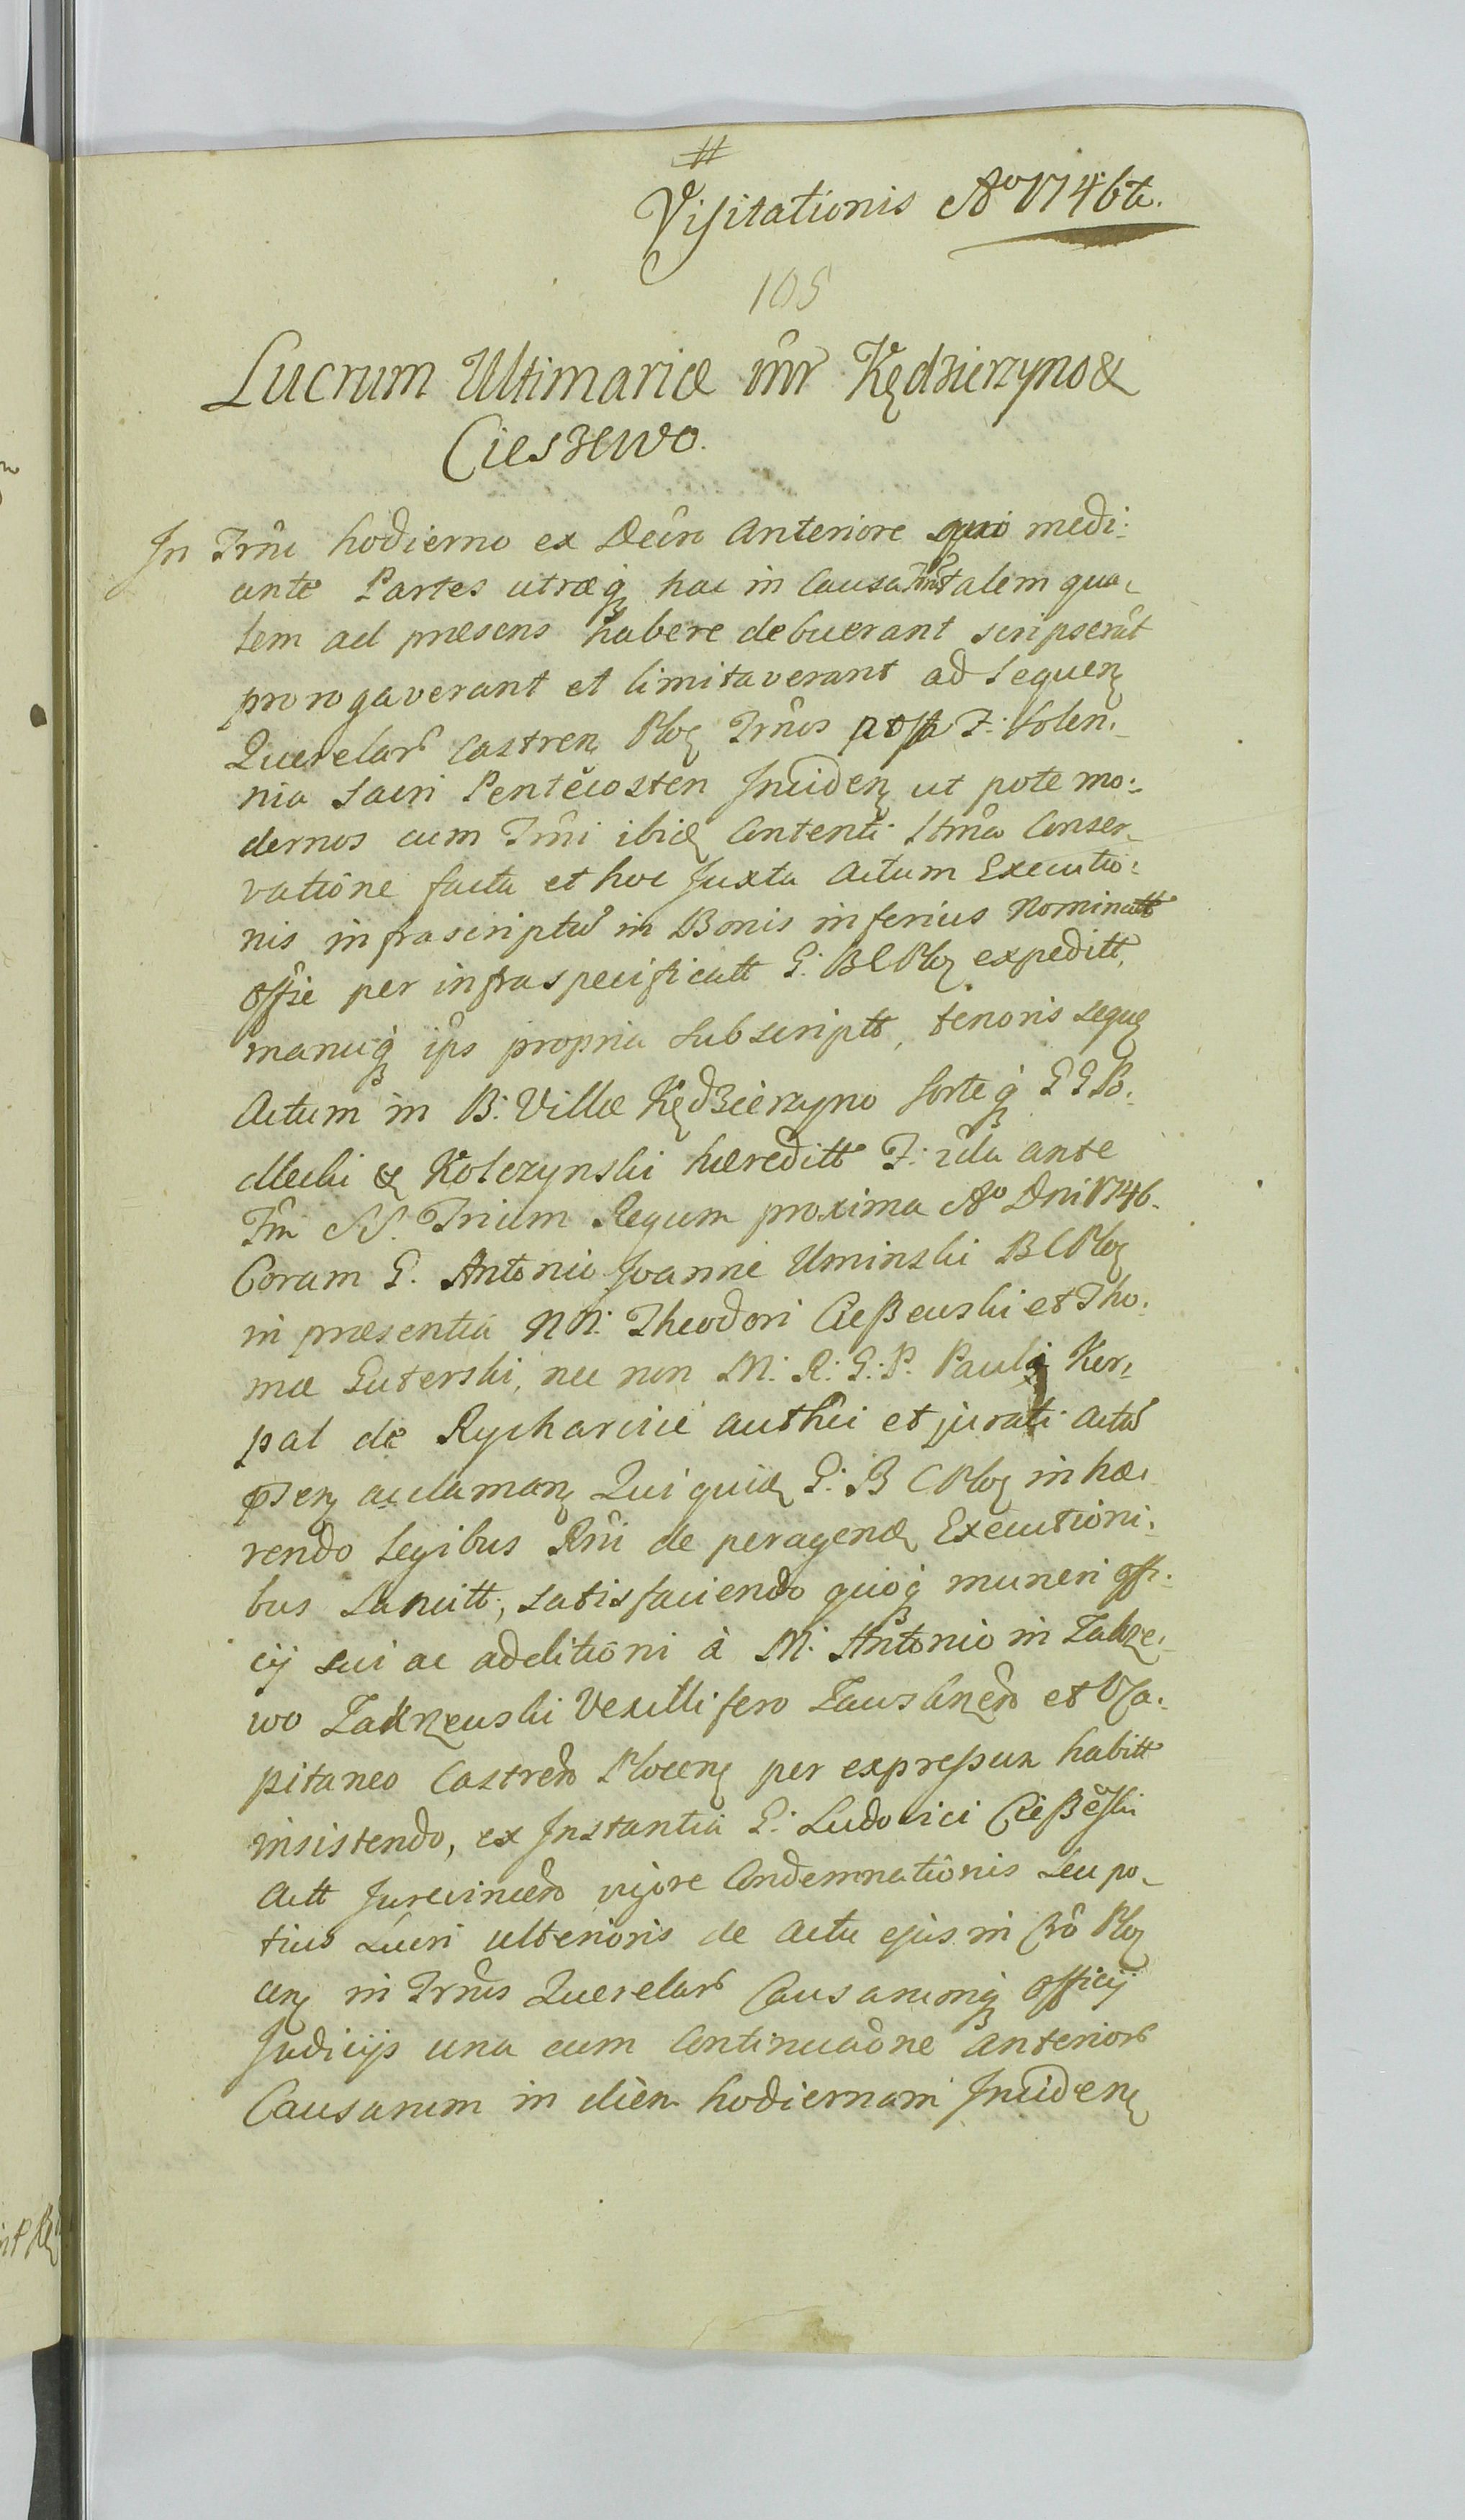 #
Visitationis Ao 1746te.
105
Lucrum Ultimariæ inr Kędzierzyno &
Cieszewo.
In Trno hodierno ex Decro Anteriore quo medi:
ante Partes utræq hac in Causa talem qua-
lem ad præsens habere debuerant scripserat
prorogaverant et limitaverant ad Sequen
Querelar Castren Ploc Trnos post F: Solen:
nia Sacri Pentecosten Inciden ut pote mo:
dernos cum Trni ibid Contenti Conser-
vatione facta et hoc Juxta Actum Executio:
nis infrascriptu in Bonis inferius Nominatt
offse per infraspecificatt G: BCPloc expeditt,
manuq ips propria Subscriptt, tenoris seque
Actum in B: Villæ Kędzierzyno Sorteq GG Po:
dlecki & Kolczynski hæreditt F: 2da ante
Fm SS. Trium Regum proxima Ao Dni 1746.
Coram G. Antonio Joanne Uminski BCPloc
in præsentia NN: Theodori Cießewski et Tho:
mæ Guterski, nec non M: R: G: P: Pauli Ker:
pal de Rycharcice authci et jurati actu
pnsen acclaman Qui quid G: B CPloc in hæ:
rendo Legibus Rni de peragend Executioni:
bus Sancitt, satisfaciendo quoq muneri offi:
cij sui ac additioni à M: Antonio in Zakrze:
wo Zakrzewski Vexillifero Zauskrzen et VCa:
pitaneo Castren Plocen per expressum habitt
insistendo, ex Instantia G: Ludovici Cießewski
Actt Jurevincen vigore Condemnationis seu po-
tius Lucri ulterioris de Actu ejus in Cro Ploc
cen in Trnis Querelar Causarumq officij
Judicijs una cum Continuaone anterior
Causarum in diem hodiernam Inciden